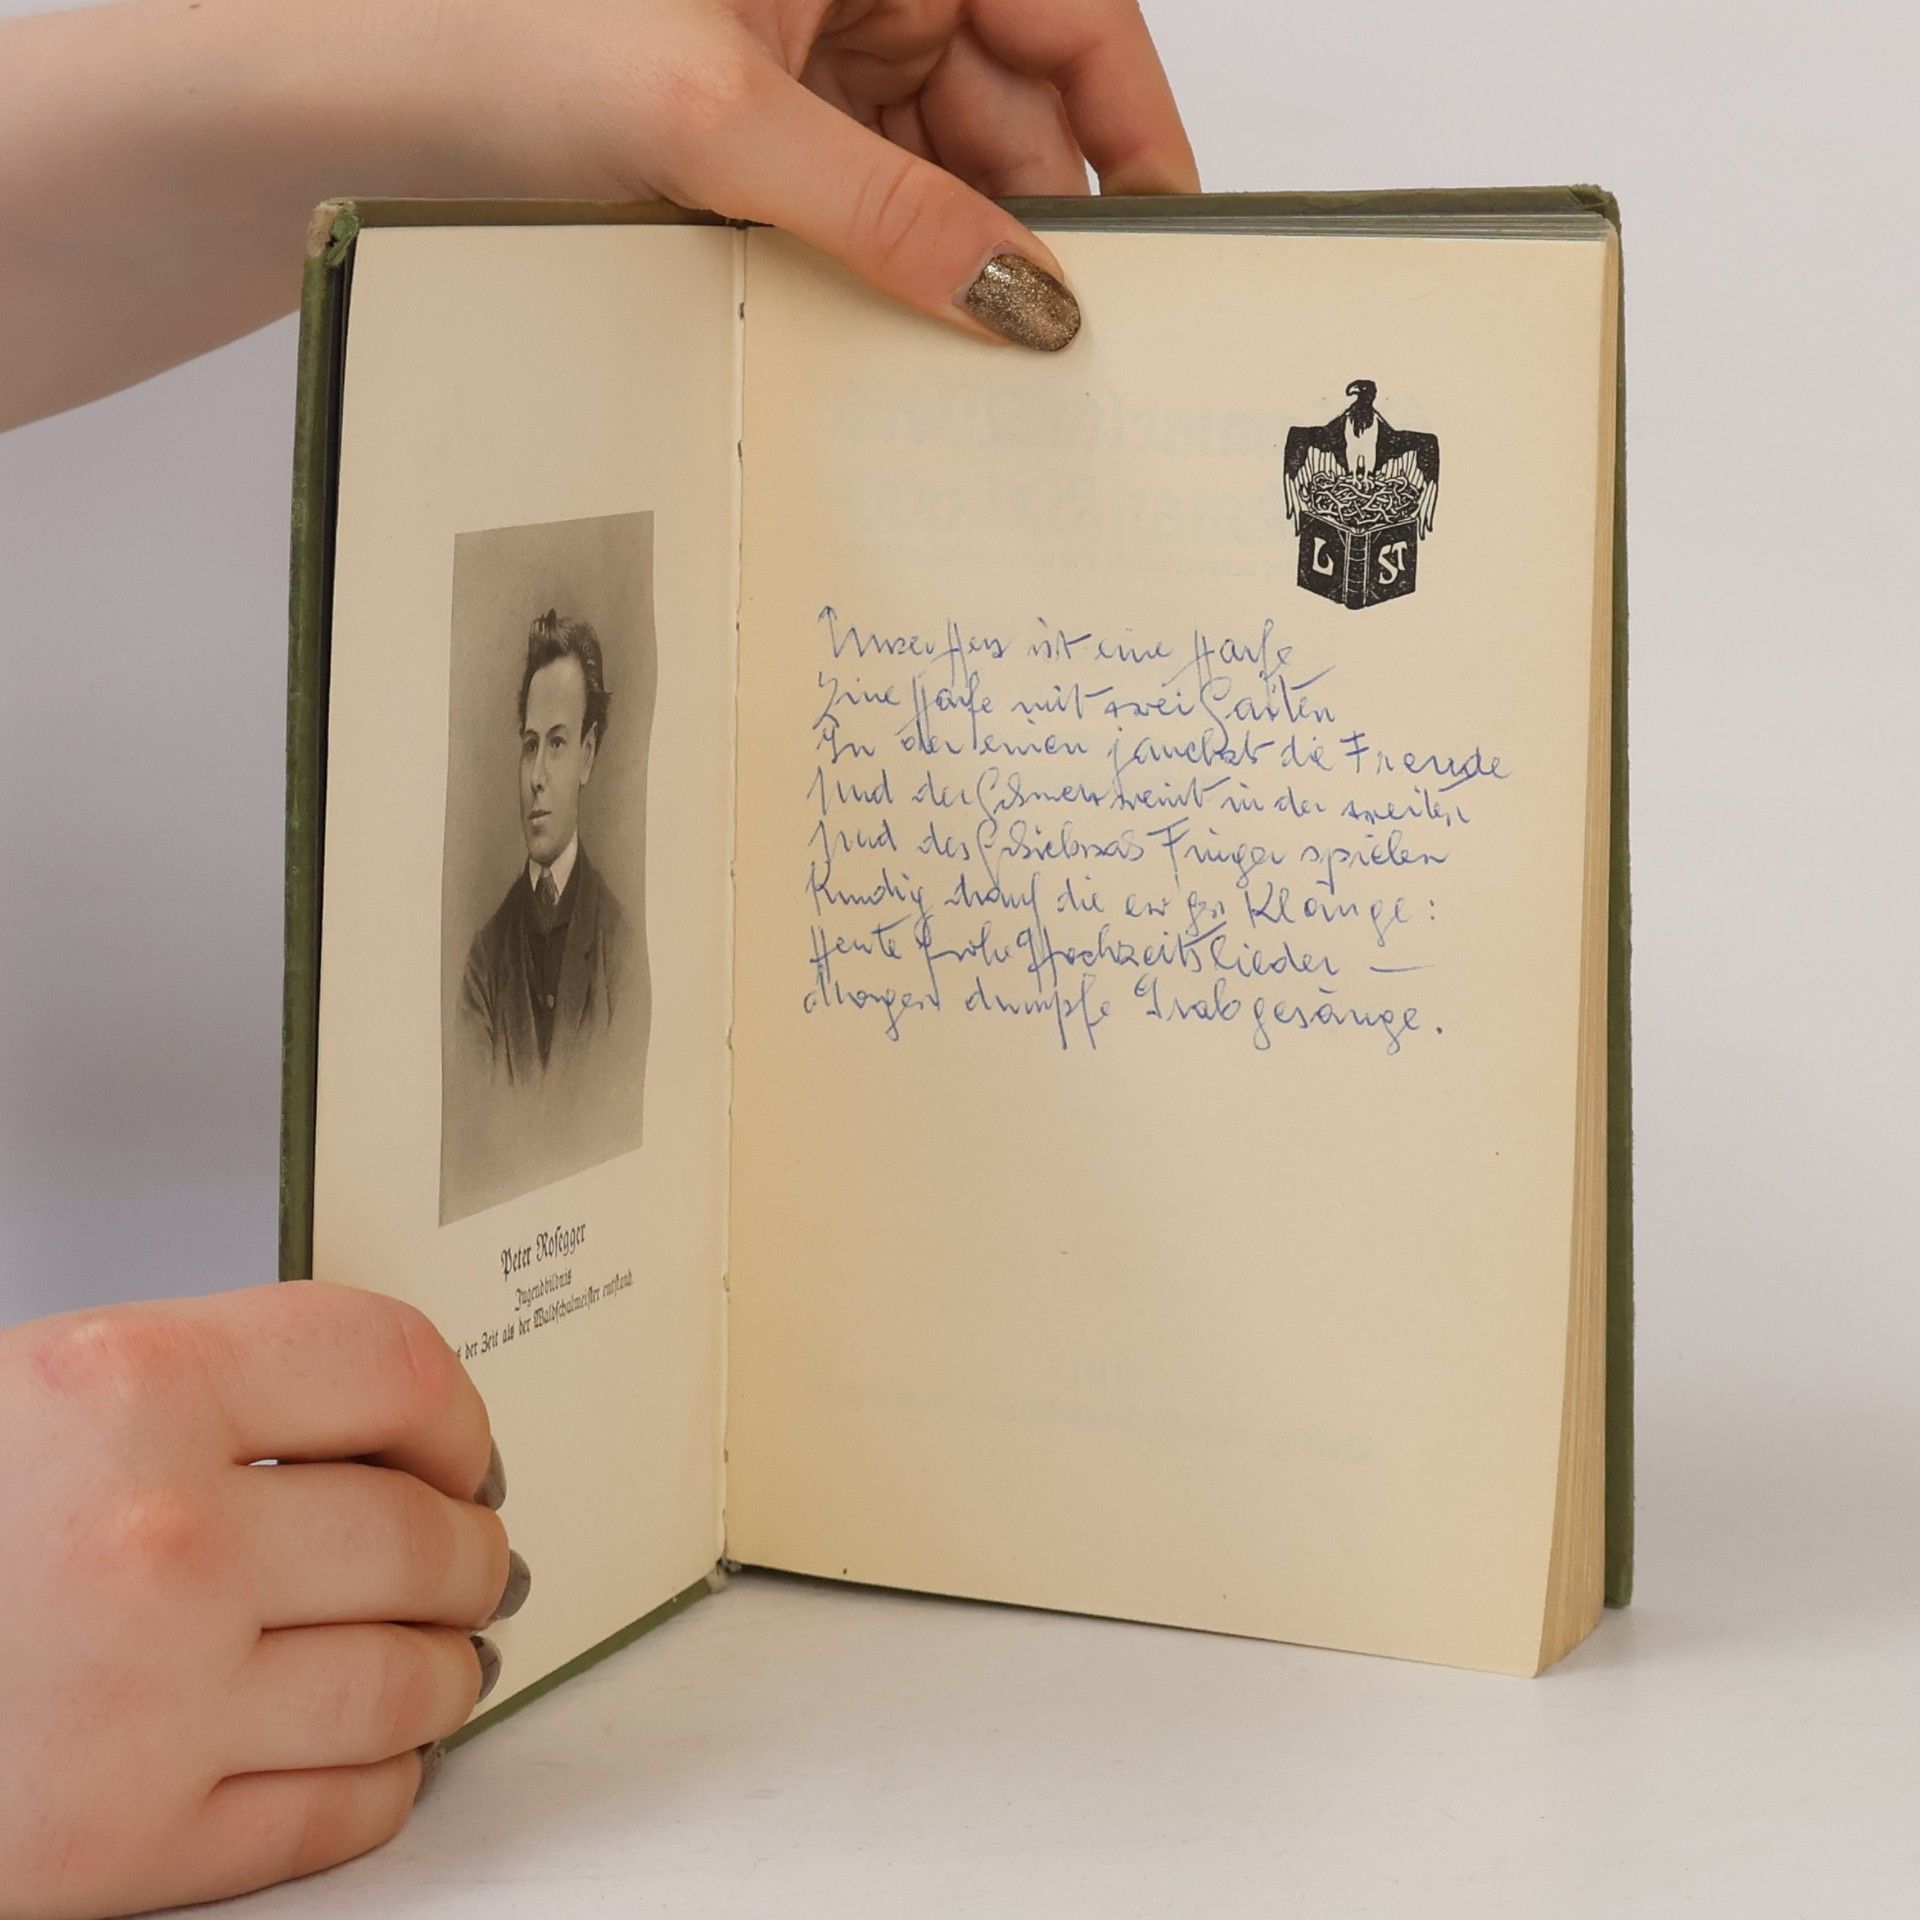 Peter Rosegger
Jugendbildnis
der Zeit als der Waldschulmeister entstand.
L ST
Unser Herz ist eine Harfe
Eine Harfe mit zwei Saiten
In der einen jauchzt die Freude
Und der Schmerz weint in der zweiten
Und des Schicksals Finger spielen
Kundig drauf die ew'gen Klänge:
Heute frohe Hochzeitslieder —
Morgen dumpfe Grabgesänge.